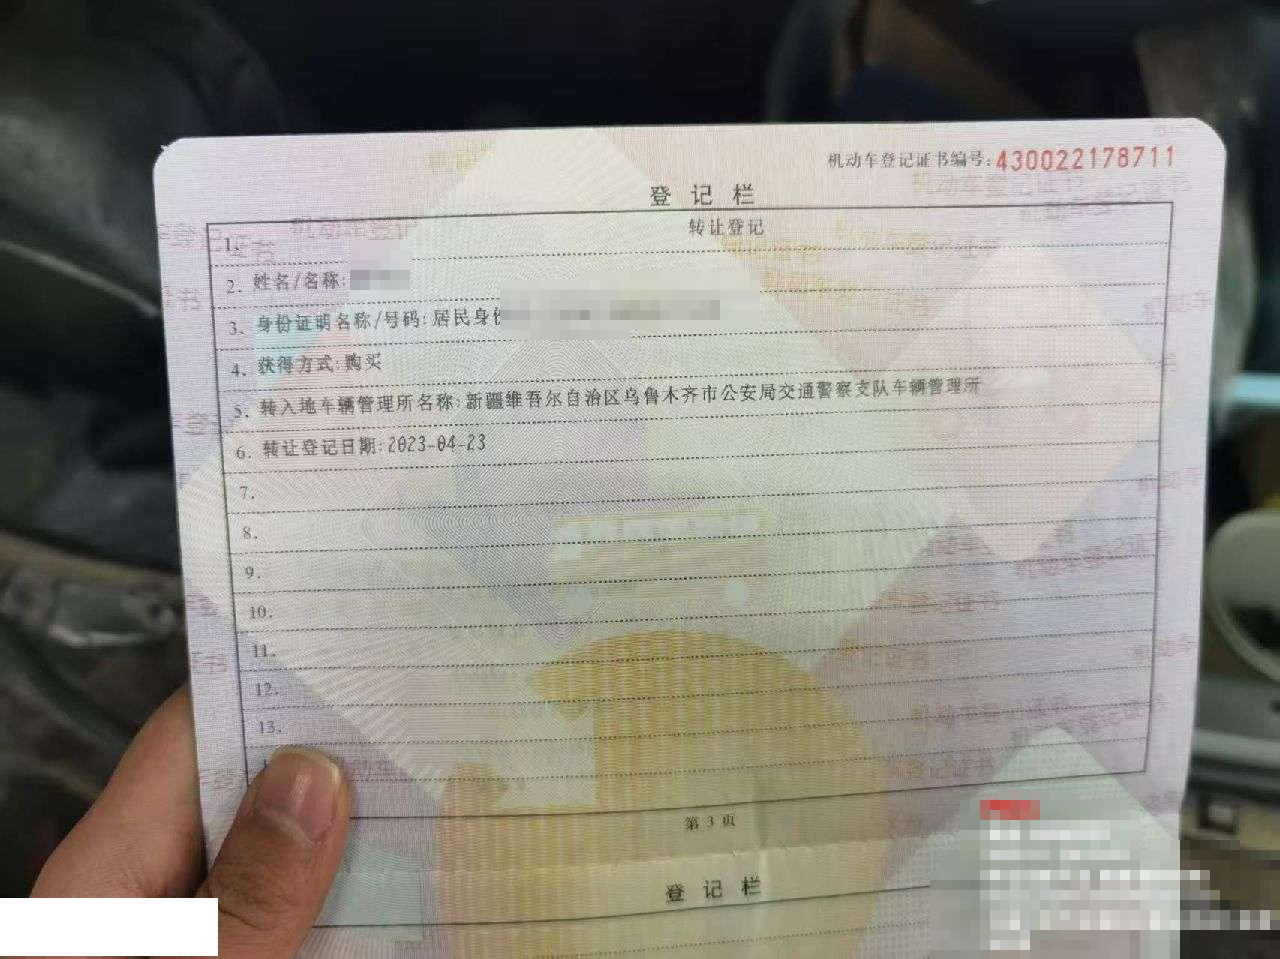 机动车登记证书编号:430022178711
登记栏
1. 转让登记
2. 姓名/名称:
3. 身份证明名称/号码:居民身份
4. 获得方式:购买
5. 转入地车辆管理所名称:新疆维吾尔自治区乌鲁木齐市公安局交通警察支队车辆管理所
6. 转让登记日期:2023-04-23
7.
8.
9.
10.
11.
12.
13.
第3页
登记栏